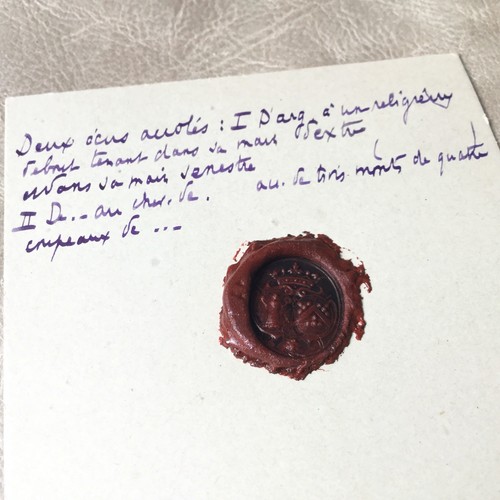 Deux écus accolés : I D'arg. à un religieux
debout tenant dans sa main dextre
et dans sa main senestre
II De .. au chev. de . acc. de trois monts de quatre
coupeaux de ...